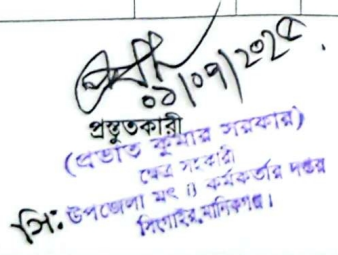 ০১/০৭/২০২৫
প্রস্তুতকারী
(প্রভাত কুমার সরকার)
ক্ষেত্র সহকারী
সি: উপজেলা মৎস্য কর্মকর্তার দপ্তর
সিংগাইর, মানিকগঞ্জ।